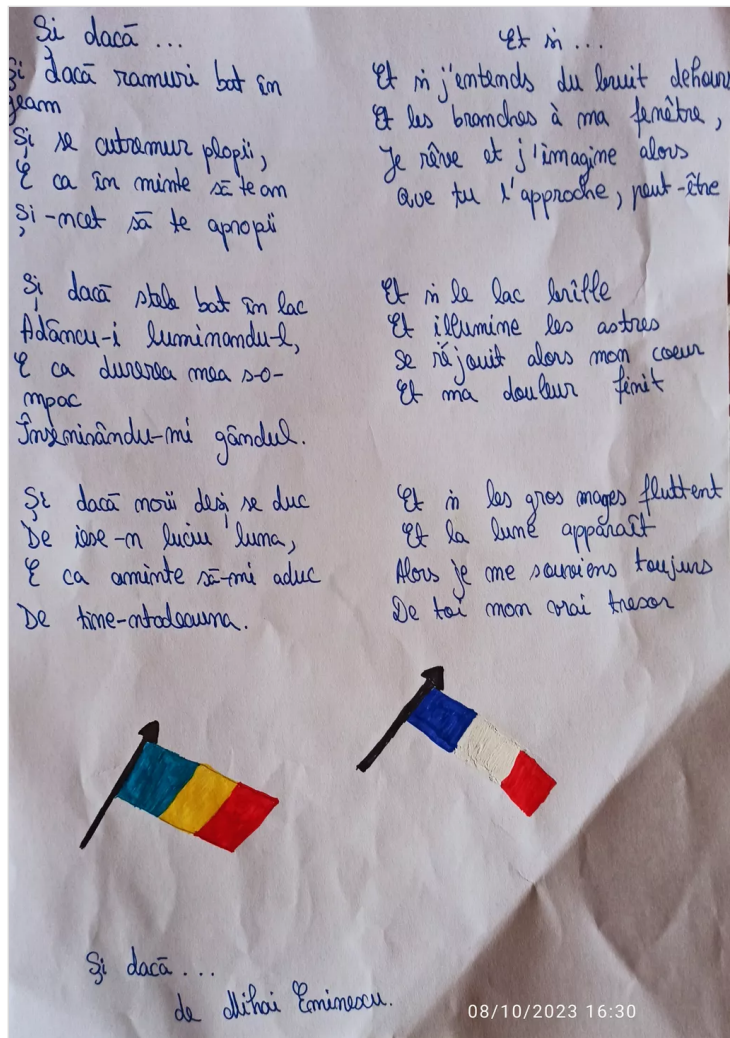 Și dacă ...
Și dacă ramuri bat în
geam
Și se cutremur plopii,
E ca în minte să te am
Și-ncet să te apropii
Și dacă stele bat în lac
Adâncu-i luminandu-l,
E ca durerea mea s-o-
mpac
Înseninându-mi gândul.
Și dacă norii deși se duc
De iese-n luciu luna,
E ca aminte să-mi aduc
De tine-ntodeauna.
Et si ...
Et si j'entends du bruit dehors
Et les branches à ma fenêtre,
Je rêve et j'imagine alors
Que tu t'approche, peut-être
Et si le lac brille
Et illumine les astres
Se réjouit alors mon coeur
Et ma douleur finit
Et si les gros nuages fluttent
Et la lune apparaît
Alors je me souviens toujurs
De toi mon vrai tresor
Și dacă ...
de Mihai Eminescu.
08/10/2023 16:30